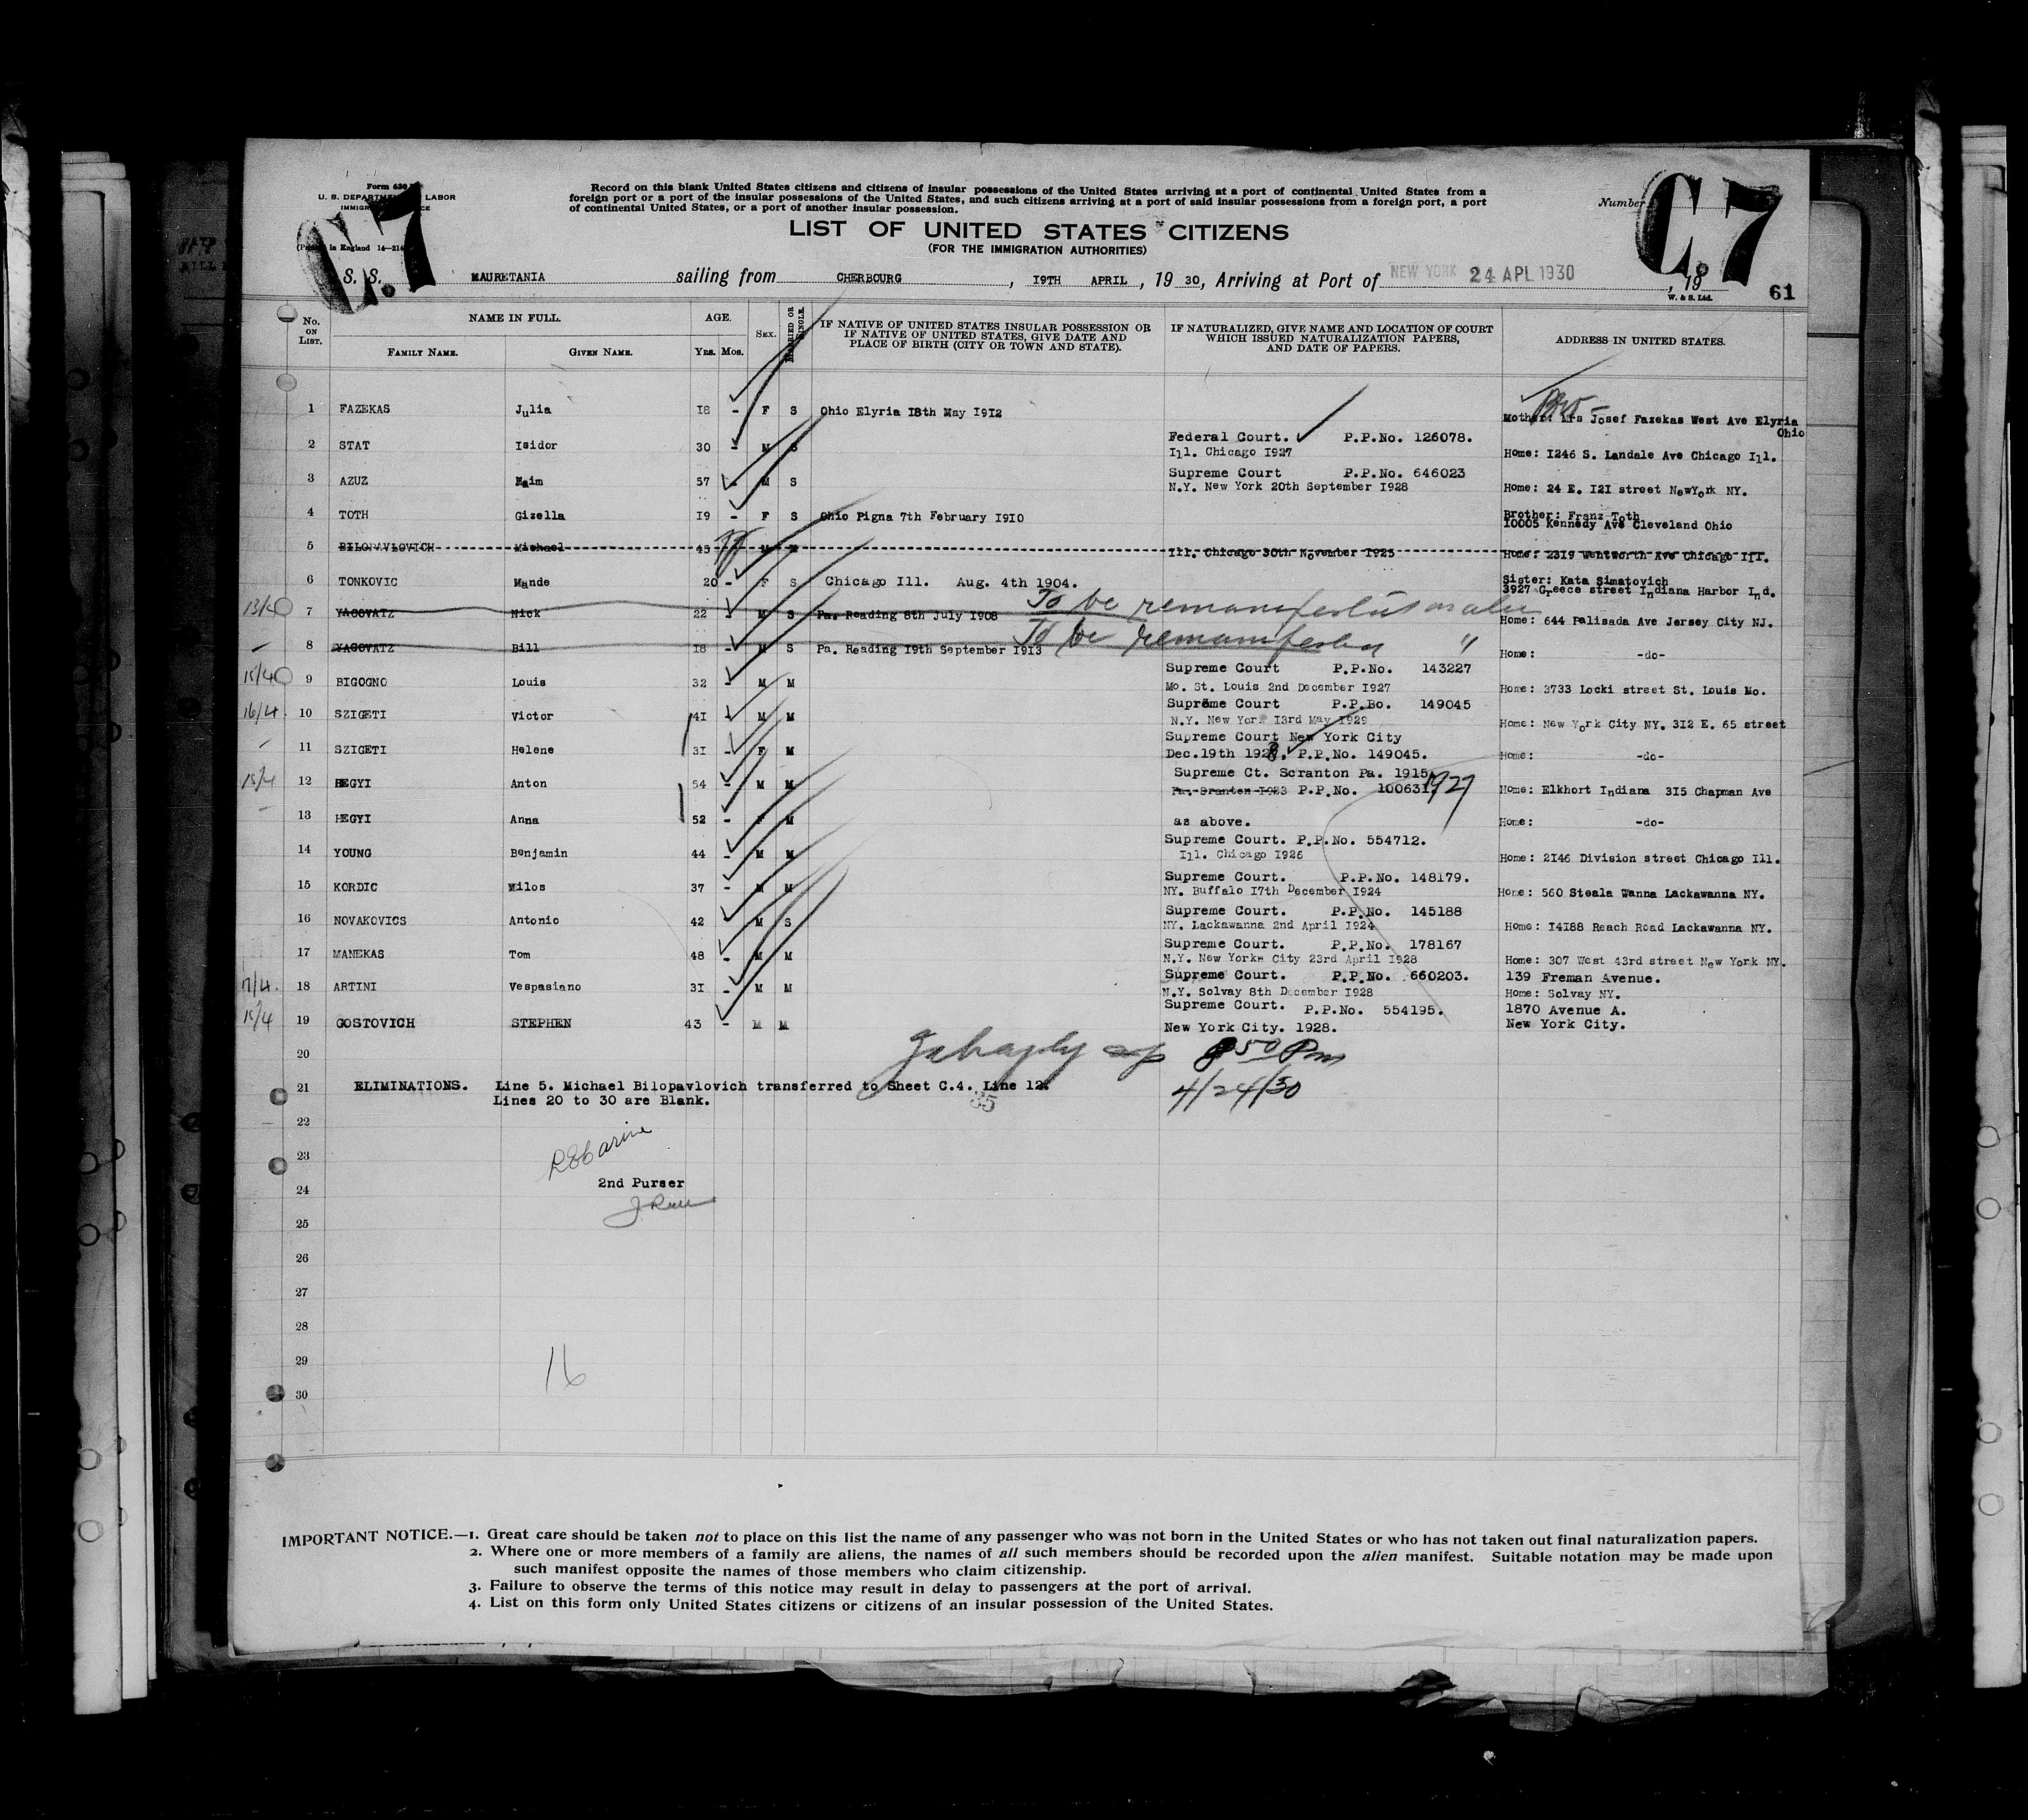 Form 630
U. S. DEPARTMENT LABOR
C.7
C.7
Record on this blank United States citizens and citizens of insular possessions of the United States arriving at a port of continental United States from a
foreign port or a port of the insular possessions of the United States, and such citizens arriving at a port of said insular possessions from a foreign port, a port
of continental United States, or a port of another insular possession.
Number
LIST OF UNITED STATES CITIZENS
(FOR THE IMMIGRATION AUTHORITIES)
in England
S. S. MAURETANIA sailing from CHERBOURG, I9TH APRIL, 19 30, Arriving at Port of NEW YORK 24 APL 1930, 19
W. & S. Ltd.
61
No. ON LIST. NAME IN FULL. AGE. SEX. MARRIED OR SINGLE. IF NATIVE OF UNITED STATES INSULAR POSSESSION OR IF NATIVE OF UNITED STATES, GIVE DATE AND PLACE OF BIRTH (CITY OR TOWN AND STATE). IF NATURALIZED, GIVE NAME AND LOCATION OF COURT WHICH ISSUED NATURALIZATION PAPERS, AND DATE OF PAPERS. ADDRESS IN UNITED STATES.
FAMILY NAME. GIVEN NAME. YRS. MOS.
1 FAZEKAS Julia I8 - F S Ohio Elyria I8th May I9I2 Mother: Mrs Josef Fazekas West Ave Elyria
Ohio
2 STAT Isidor 30 - M S Federal Court. P.P.No. 126078.
Ill. Chicago I927 Home: I246 S. Landale Ave Chicago Ill.
3 AZUZ Maim 57 - M S Supreme Court P.P.No. 646023
N.Y. New York 20th September I928 Home: 24 E. I2I street NewYork NY.
4 TOTH Gizella I9 - F S Ohio Pigna 7th February I9I0 Brother: Franz Toth
I0005 Kennedy Ave Cleveland Ohio
5 BILOPAVLOVICH Michael 43 M M Ill. Chicago 30th November I925 Home: 2319 Wentworth Ave Chicago Ill.
6 TONKOVIC Mande 20 - F S Chicago Ill. Aug. 4th 1904. Sister: Kata Simatovich
3927 Greece street Indiana Harbor Ind.
13/4 7 YAGOVATZ Nick 22 - M S Pa. Reading 8th July I908 To be remanifested as alien
Home: 644 Palisada Ave Jersey City NJ.
8 YAGOVATZ Bill I8 - M S Pa. Reading I9th September I9I3 To be remanifested "
Home: -do-
15/4 9 BIGOGNO Louis 32 - M M Supreme Court P.P.No. 143227
Mo. St. Louis 2nd December I927 Home: 3733 Locki street St. Louis Mo.
16/4. 10 SZIGETI Victor 4I - M M Supreme Court P.P.Bo. 149045
N.Y. New York I3rd May I929 Home: New York City NY. 3I2 E. 65 street
11 SZIGETI Helene 3I - F M Supreme Court New York City
Dec.19th 1928. P.P.No. 149045. Home: -do-
15/4 12 HEGYI Anton 54 - M M Supreme Ct. Scranton Pa. 1915.
Pa. Sranten I923 P.P.No. 100631. 1927 Home: Elkhort Indiana 3I5 Chapman Ave
13 HEGYI Anna 52 - F M as above. Home: -do-
14 YOUNG Benjamin 44 - M M Supreme Court. P.P.No. 554712.
Ill. Chicago I926 Home: 2I46 Division street Chicago Ill.
15 KORDIC Milos 37 - M M Supreme Court. P.P.No. 148179.
NY. Buffalo I7th December I924 Home: 560 Steala Wanna Lackawanna NY.
16 NOVAKOVICS Antonio 42 - M S Supreme Court. P.P.No. 145188
NY. Lackawanna 2nd April I924 Home: I4I88 Reach Road Lackawanna NY.
17 MANEKAS Tom 48 - M M Supreme Court. P.P.No. 178167
N.Y. New Yorke City 23rd April I928 Home: 307 West 43rd street New York NY.
17/4. 18 ARTINI Vespasiano 3I - M M Supreme Court. P.P.No. 660203.
N.Y. Solvay 8th December I928 139 Freman Avenue.
Home: Solvay NY.
15/4 19 GOSTOVICH STEPHEN 43 - M M Supreme Court. P.P.No. 554195.
New York City. 1928. 1870 Avenue A.
New York City.
20 8 50 Pm
21 ELIMINATIONS. Line 5. Michael Bilopavlovich transferred to Sheet C.4. Line 12.
Lines 20 to 30 are Blank.
35
4/24/30
22
23
2nd Purser
24
25
26
27
28
29
16
30
IMPORTANT NOTICE.—1. Great care should be taken not to place on this list the name of any passenger who was not born in the United States or who has not taken out final naturalization papers.
2. Where one or more members of a family are aliens, the names of all such members should be recorded upon the alien manifest. Suitable notation may be made upon
such manifest opposite the names of those members who claim citizenship.
3. Failure to observe the terms of this notice may result in delay to passengers at the port of arrival.
4. List on this form only United States citizens or citizens of an insular possession of the United States.